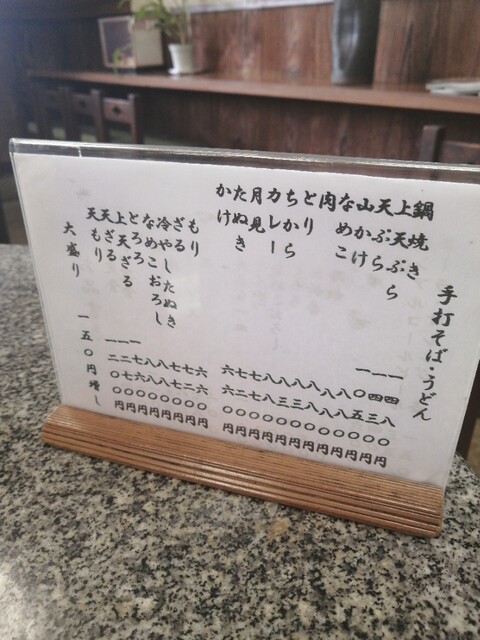 手打そば・うどん
鍋焼き 一四八〇円
上天ぷら 一四三〇円
天ぷら 一〇五〇円
山かけ 八八〇円
なめこ 八八〇円
肉 八八〇円
とり 八三〇円
ちから 八三〇円
カレー 八八〇円
月見 七七〇円
たぬき 七二〇円
かけ 六六〇円
もり 六六〇円
ざる 七二〇円
冷やしたぬき 七七〇円
なめこおろし 八八〇円
とろろ 八八〇円
上天ざる
天ざる 一二七〇円
天もり
大盛り 一五〇円増し